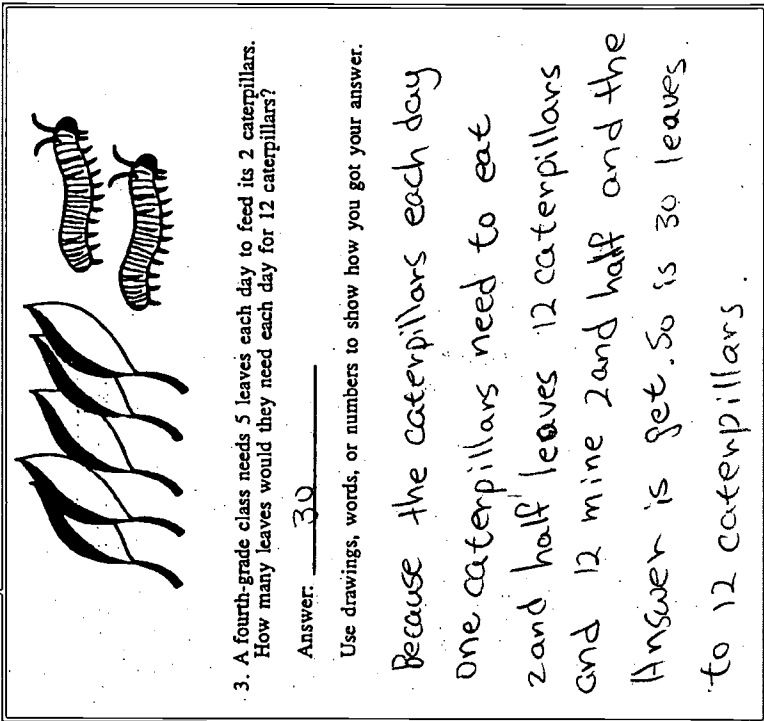 3. A fourth-grade class needs 5 leaves each day to feed its 2 caterpillars.
How many leaves would they need each day for 12 caterpillars?
Answer: 30
Use drawings, words, or numbers to show how you got your answer.
Because the caterpillars each day
one caterpillars need to eat
2and half leaves 12 caterpillars
and 12 mine 2and half and the
Answer is get. So is 30 leaves.
to 12 caterpillars.